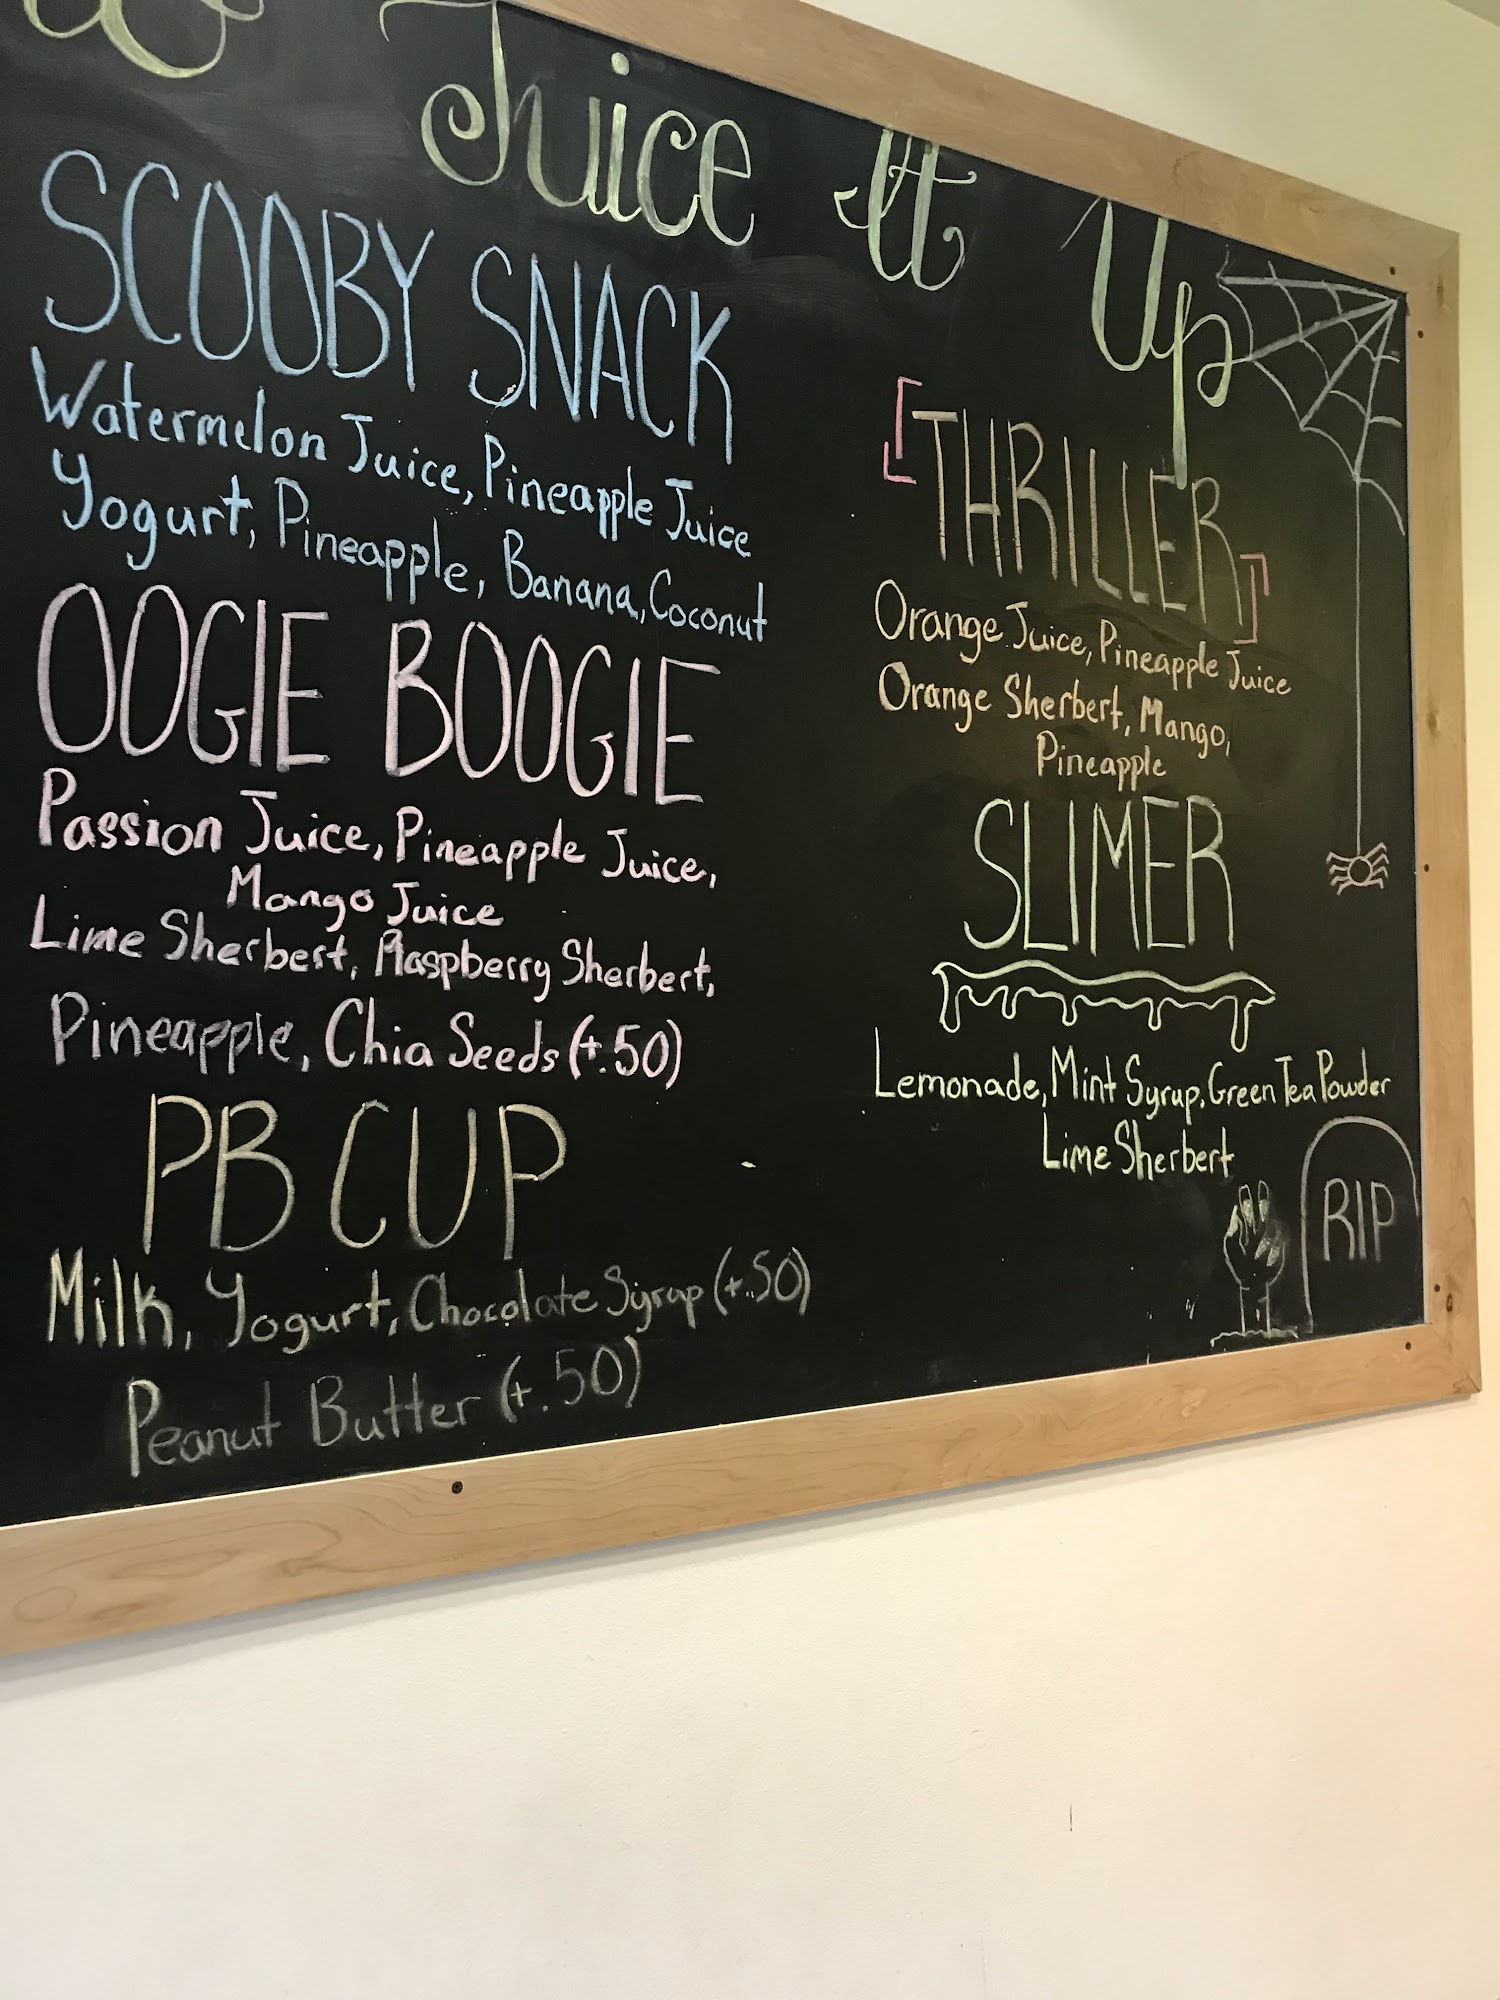 Juice It Up
SCOOBY SNACK
Watermelon Juice, Pineapple Juice
Yogurt, Pineapple, Banana, Coconut
OOGIE BOOGIE
Passion Juice, Pineapple Juice,
Mango Juice
Lime Sherbert, Raspberry Sherbert,
Pineapple, Chia Seeds (+.50)
PB CUP
Milk, Yogurt, Chocolate Syrup (+.50)
Peanut Butter (+.50)
[THRILLER]
Orange Juice, Pineapple Juice
Orange Sherbert, Mango,
Pineapple
SLIMER
Lemonade, Mint Syrup, Green Tea Powder
Lime Sherbert
RIP